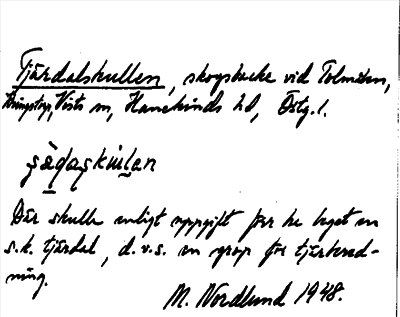 Tjärdalskullen, skogsbacke vid Tolmitorn,
Kringstorp, Värö sn, Hanekinds hd, Östg. l.
şädaşkɯļan
Där skulle enligt uppgift förr ha legat en
s.k. tjärdal, d.v.s. en grop för tjärbered-
ning.
M. Nordlund 1948.